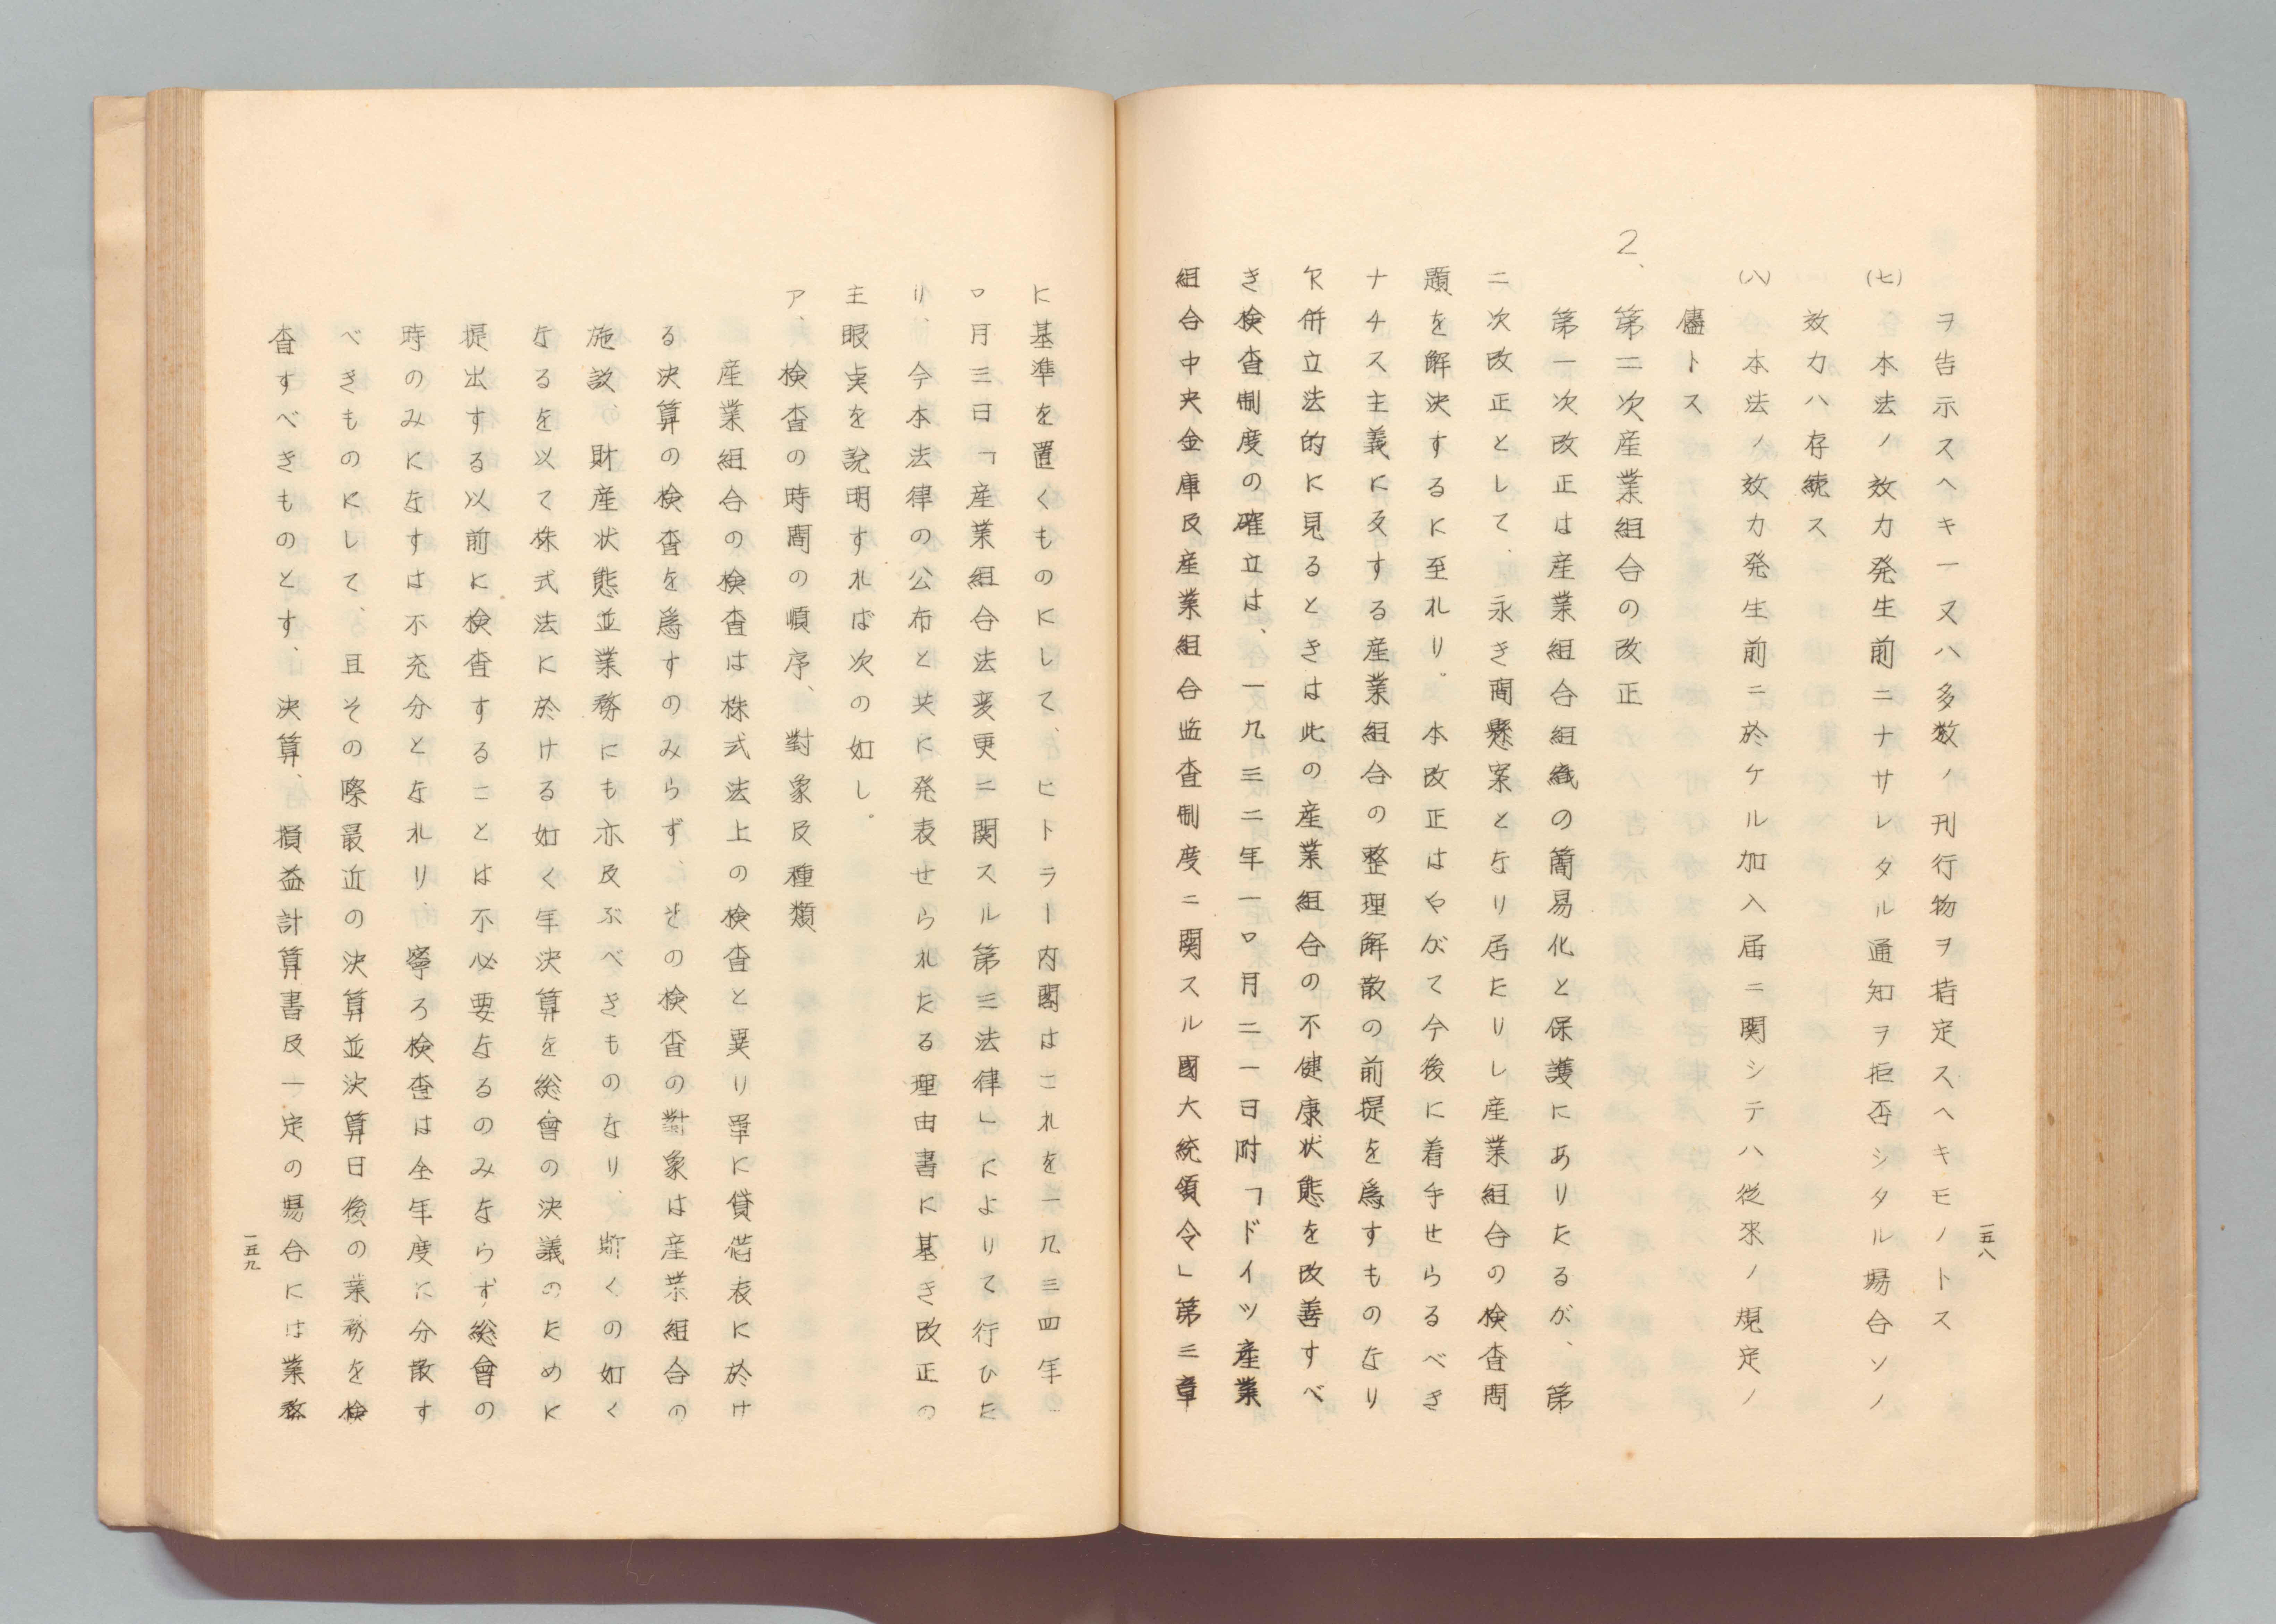 ヲ告示スヘキ一又ハ多数ノ刊行物ヲ指定スヘキモノトス
(七) 本法ノ效力発生前ニナサレタル通知ヲ拒否シタル場合ソノ
效力ハ存続ス
(八) 本法ノ效力発生前ニ於ケル加入届ニ関シテハ従来ノ規定ノ
儘トス
2、第二次産業組合の改正
第一次改正は産業組合組織の簡易化と保護にありたるが、第
二次改正として、永き間懸案となり居たりし産業組合の検査問
題を解決するに至れり。本改正はやがて今後に着手せらるべき
ナチス主義に反する産業組合の整理解散の前提を為すものなり
又併立法的に見るときは此の産業組合の不健康状態を改善すべ
き検査制度の確立は、一九三二年一〇月二一日附「ドイツ産業
組合中央金庫及産業組合監査制度ニ関スル國大統領令」第三章
一五八
に基準を置くものにして、ヒトラー内閣はこれを一九三四年の
〇月三日「産業組合法変更ニ関スル第三法律」によりて行ひた
り、今本法律の公布と共に発表せられたる理由書に基き改正の
主眼点を説明すれば次の如し。
ア、検査の時間の順序、對象及種類
産業組合の検査は株式法上の検査と異り単に貸借表に於け
る決算の検査を為すのみらず、その検査の對象は産業組合の
施設、財産状態並業務にも亦及ぶべきものなり、斯くの如く
なるを以て株式法に於ける如く年決算を総會の決議のために
提出する以前に検査することは不必要なるのみならず総會の
時のみになすは不充分となれり、寧ろ検査は全年度に分散す
べきものにして、且その際最近の決算並決算日後の業務を検
査すべきものとす、決算、損益計算書及一定の場合には業務
一五九